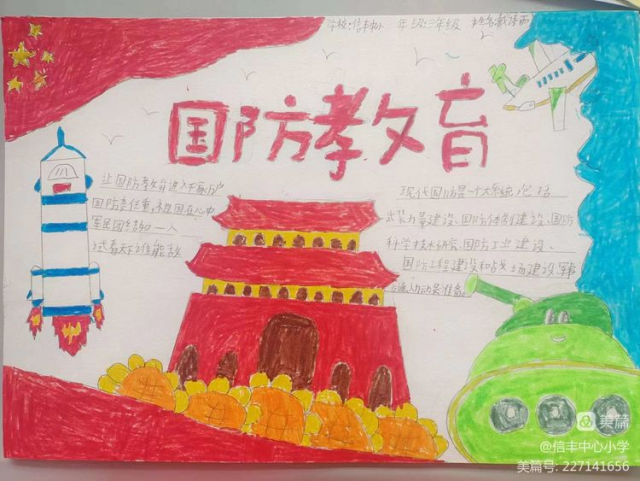 学校:信丰小 年级:三年级 姓名:戴
国防教育
让国防教育进入千家万户
国防责任重,祖国在心中
军民团结如一人
试看天下谁能敌
现代国防是一个大系统,包括
武装力量建设、国防体制建设、国防
科学技术研究、国防工业建设、
国防工程建设和战场建设、军事
交通、动员准备
美篇
@信丰中心小学
美篇号: 227141656